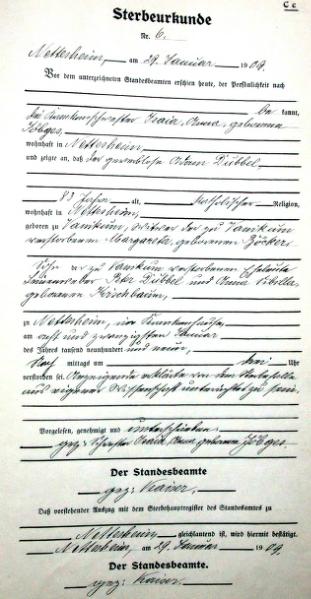 C c
Sterbeurkunde
Nr. 6.
Nettersheim, am 29. Januar 1909.
Vor dem unterzeichneten Standesbeamten erschien heute, der Persönlichkeit nach
be kannt,
die Krankenschwester Anna, geborene
Jöbges,
wohnhaft in Nettersheim,
und zeigte an, daß der gewerblose Adam Dübbel,
83 Jahre alt, katholischer Religion,
wohnhaft in Nettersheim,
geboren zu Vanikum, Witwer der zu Vanikum
verstorbenen Margareta, geborenen Böcker,
Sohn der zu Vanikum verstorbenen Eheleute
Peter Dübbel und Anna Sibilla
geborenen Kirschbaum,
zu Nettersheim, im Krankenhause,
am acht und zwanzigsten Januar
des Jahres tausend neunhundert und neun,
Nach mittags um drei Uhr
verstorben sei. Anzeigende erklärte von dem Sterbefalle
aus eigener Wissenschaft unterrichtet zu sein.
Vorgelesen, genehmigt und unterschrieben
gez: Schwester Anna geborene Jöbges.
Der Standesbeamte
gez: Kaiser.
Daß vorstehender Auszug mit dem Sterbehauptregister des Standesamtes zu
Nettersheim gleichlautend ist, wird hiermit bestätigt.
Nettersheim, am 29. Januar 1909.
Der Standesbeamte.
gez: Kaiser.